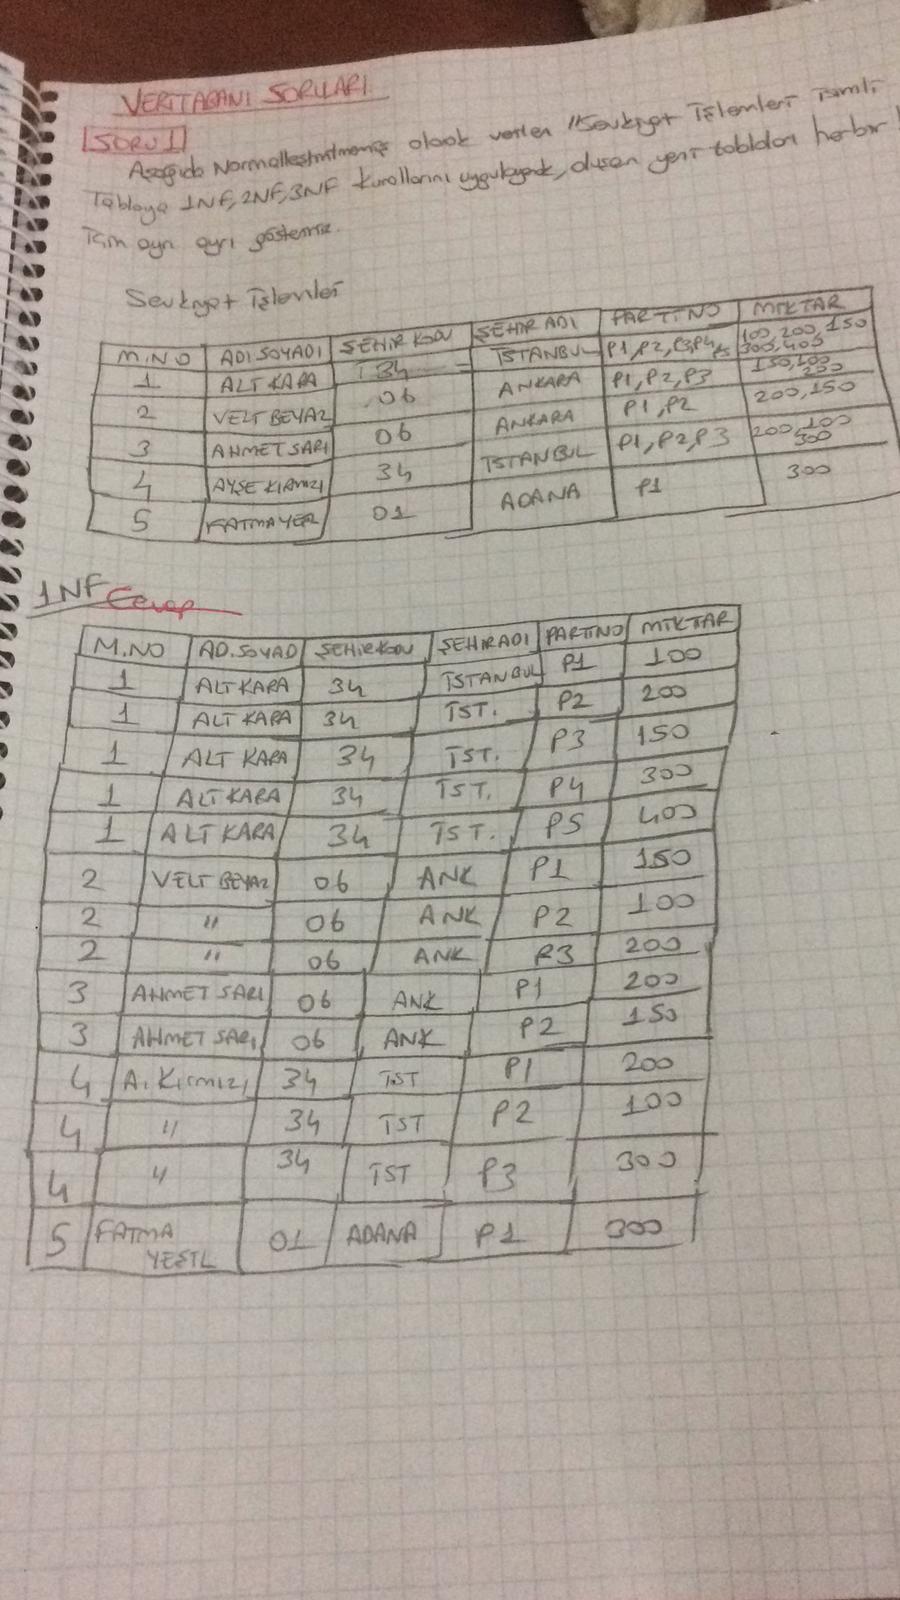 VERİTABANI SORULARI
SORU 1
Aşağıda Normalleştirilmemiş olarak verilen "Sevkiyat İşlemleri isimli
Tabloya 1NF, 2NF, 3NF kurallarını uygulayarak, oluşan yeni tabloları herbir
için ayrı ayrı gösteriniz.
Sevkiyat İşlemleri
M.NO ADI SOYADI ŞEHİR KODU ŞEHİR ADI PARTİNO MİKTAR
1 ALİ KARA 34 İSTANBUL P1, P2, P3, P4, P5 100, 200, 150 300, 400
2 VELİ BEYAZ 06 ANKARA P1, P2, P3 150, 100 200
3 AHMET SARI 06 ANKARA P1, P2 200, 150
4 AYŞE KIRMIZI 34 İSTANBUL P1, P2, P3 200, 100 300
5 FATMA YEŞİL 01 ADANA P1 300
1NF Cevap
M.NO AD.SOYAD ŞEHİRKODU ŞEHİRADI PARTİNO MİKTAR
1 ALİ KARA 34 İSTANBUL P1 100
1 ALİ KARA 34 İST. P2 200
1 ALİ KARA 34 İST. P3 150
1 ALİ KARA 34 İST. P4 300
1 ALİ KARA 34 İST. P5 400
2 VELİ BEYAZ 06 ANK P1 150
2 " 06 ANK P2 100
2 " 06 ANK P3 200
3 AHMET SARI 06 ANK P1 200
3 AHMET SARI 06 ANK P2 150
4 A. Kırmızı 34 İST P1 200
4 " 34 İST P2 100
4 " 34 İST P3 300
5 FATMA YEŞİL 01 ADANA P1 300